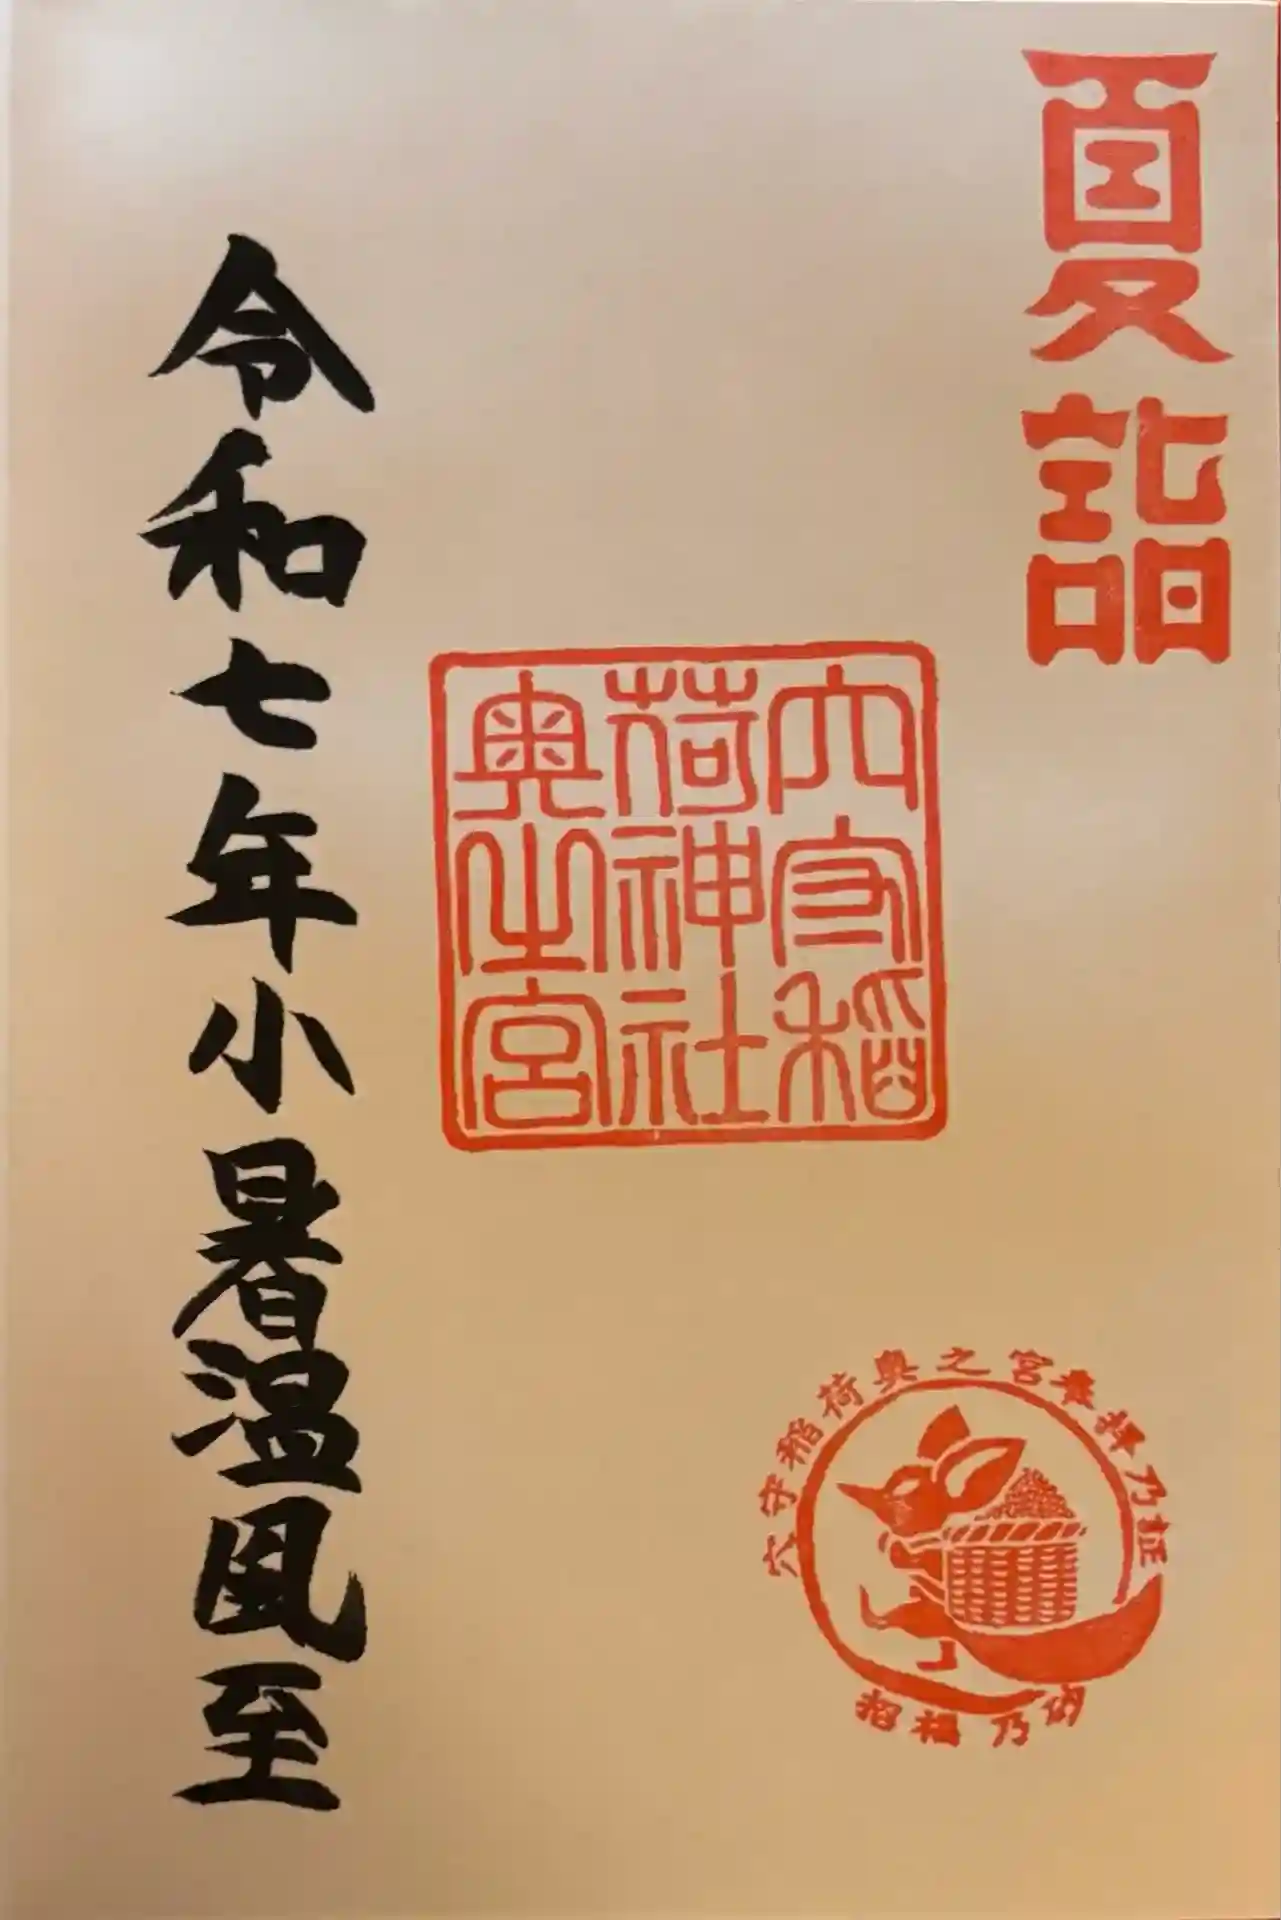 夏詣
六守稲
荷神社
奥之宮
令和七年小暑温風至
六守稲荷奥之宮参拝乃証
招福乃